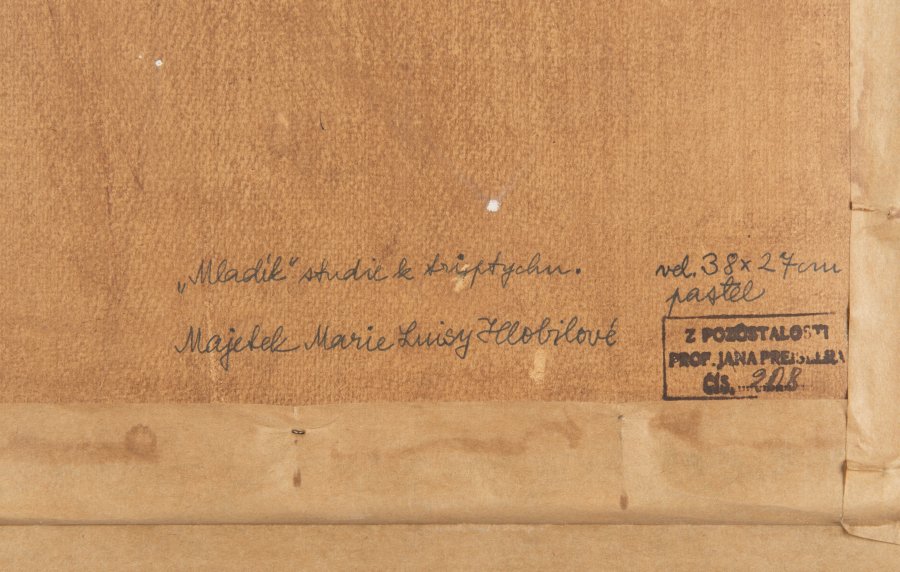 „Mladík“ studie k triptychu.
Majetek Marie Luisy Hlobilové
vel. 38 x 27 cm
pastel
Z POZŮSTALOSTI
PROF. JANA PREISLERA
ČÍS. 208